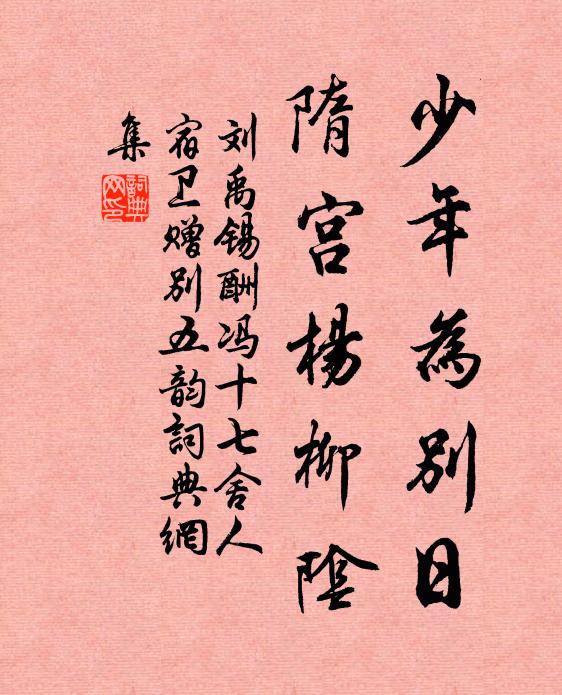 少年為别日
隋宫楊柳陰
刘禹锡酬冯十七舍人
宿卫赠别五韵詞典網
集
詞典
网印